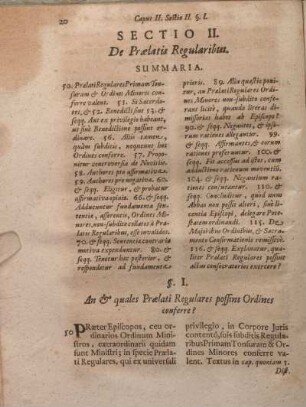 20 Caput II. Sectio II. §. I.
SECTIO II.
De Prælatis Regularibus.
SUMMARIA.
50. Prælati Regulares Primam Tonsuram
& Ordines Minores conferre
valent. 51. Si Sacerdotes,
& 52. Benedicti sint 53. &
seqq. Aut ex privilegio habeant,
ut sint Benedictione possint ordinare.
56. Aliò tamen,
quàm subditis, nequeunt hos
Ordines conferre. 57. Proponitur
controversia de Novitiis.
58. Authores pro affirmativa.
59. Authores pro negativa. 60. &
seqq. Eligitur, & probatur
affirmativa opinio. 66. & seqq.
Adducuntur fundamenta sententiæ,
asserentis, Ordines Minores,
non-subditis collatos à Prælatis
Regularibus, esse validos.
70. & seqq. Sententia contraria
amovetur exponendo. 80. &
seqq. Tenetur posterior, &
respondetur ad fundamenta
prioris. 89. Alia quæstio ponitur,
an Prælati Regulares Ordines
Minores non-subditis conferant
licitè, quando literas dimissoriales
habent ab Episcopo?
90. & seqq. Negantes, & ipsorum
rationes adducuntur. 99. &
seqq. Affirmantes. 106. &
seqq. Fit accessus ad istos, cum
adductione rationum eorundem.
114. & seqq. Negantium rationes
concluduntur. 119. &
seqq. Concluditur, quòd unus
Abbas non possit alteri, sine licentia
Episcopi, delegare Potestatem
ordinandi. 126. & seqq. De
Majoribus Ordinibus, & Sacramento
Confirmationis remissivè.
136. & seqq. Explanatur, qualiter
Prælati Regulares possint
alias consecrationes exercere?
§. I.
An & quales Prælati Regulares possint Ordines
conferre?
50 PRæter Episcopos, ceu ordinarios
Ordinum Ministros,
extraordinarii quidam
sunt Ministri; in specie Prælati
Regulares, qui ex universali
privilegio, in Corpore Juris
contentô, suis subditis Regularibus
Primam Tonsuram & Ordines
Minores conferre valent.
Textus in cap. quoniam 3.
Dist.